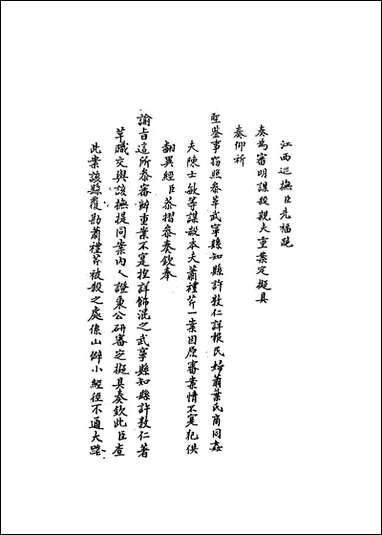 江西巡撫臣先福跪
奏為審明謀殺親夫重案定擬具
奏仰祈
聖鑒事竊照叅革武寧縣知縣許敦仁詳報民婦蕭葉氏商同姦
夫陳士敏等謀殺本夫蕭禮芹一案因原審案情不寔犯供
翻異經臣恭摺叅奏欽奉
諭旨這所叅審辦重案不寔捏詳飾混之武寧縣知縣許敦仁著
革職交與該撫提同案內人證東公研審定擬具奏欽此臣查
此案該縣覆勘蕭禮芹被殺之處係山僻小經徑不通大路